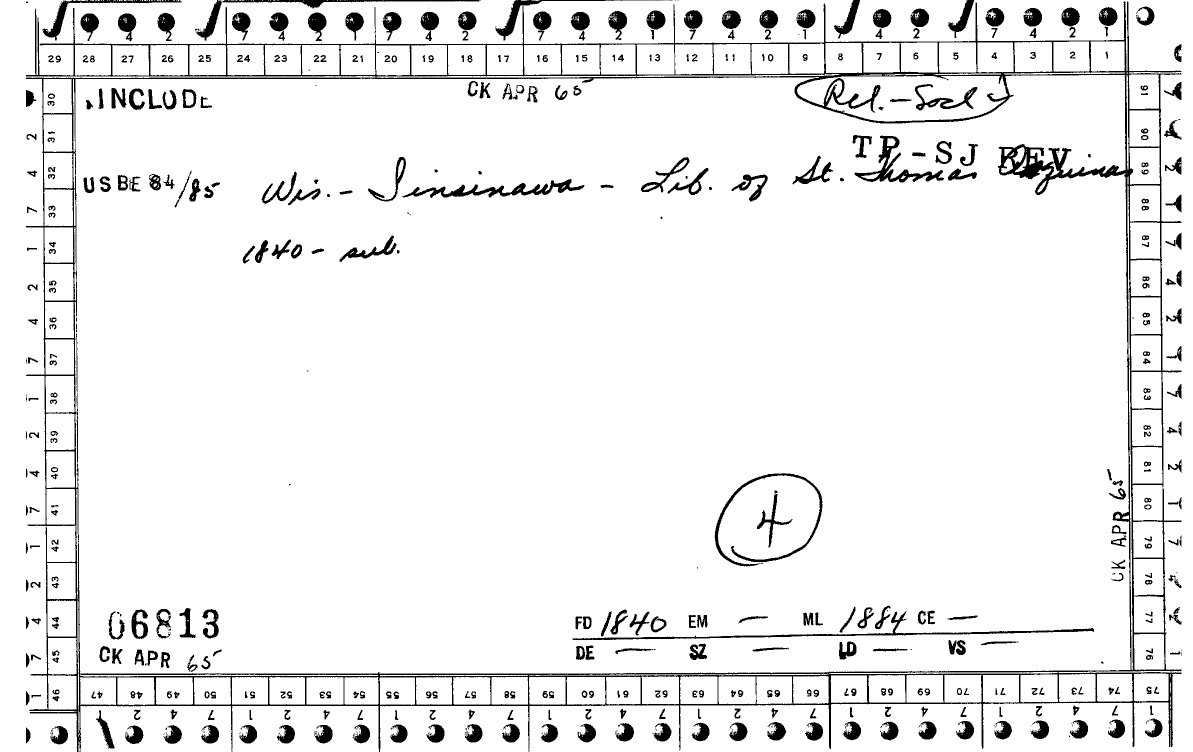 7 4 2 1 7 4 2 1 7 4 2 1 7 4 2 1 7 4 2 1 7 4 2 1 7 4 2 1
29 28 27 26 25 24 23 22 21 20 19 18 17 16 15 14 13 12 11 10 9 8 7 6 5 4 3 2 1
INCLUDE
CK APR 65
Rel.-Socl
TP-SJ REV
USBE 84/85 Wis. - Sinsinawa - Lib. of St. Thomas Aquinas
1840 - sub.
4
CK APR 65
06813
CK APR 65
FD 1840 EM — ML 1884 CE —
DE — SZ — LD — VS —
30 31 32 33 34 35 36 37 38 39 40 41 42 43 44 45 46
2 4 7 1 2 4 7 1 2 4 7 1 2 4 7 1
91 90 89 88 87 86 85 84 83 82 81 80 79 78 77 76
47 48 49 50 51 52 53 54 55 56 57 58 59 60 61 62 63 64 65 66 67 68 69 70 71 72 73 74 75
1 2 4 7 1 2 4 7 1 2 4 7 1 2 4 7 1 2 4 7 1 2 4 7 1 2 4 7 1